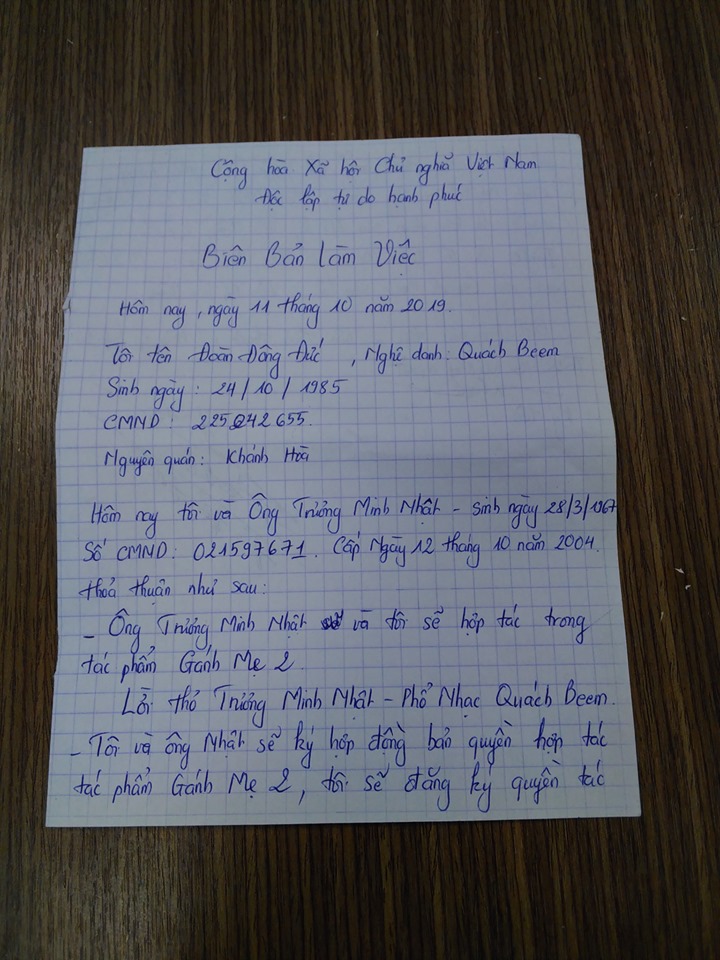 Cộng hòa Xã hội Chủ nghĩa Việt Nam
Độc lập tự do hạnh phúc
Biên Bản làm Việc
Hôm nay, ngày 11 tháng 10 năm 2019.
Tôi tên Đoàn Đông Đức, Nghệ danh: Quách Beem
Sinh ngày: 24/10/1985
CMND: 225242655.
Nguyên quán: Khánh Hòa
Hôm nay tôi và Ông Trương Minh Nhật - sinh ngày 28/3/1967
Số CMND: 021597671. Cấp Ngày 12 tháng 10 năm 2004.
thoả thuận như sau:
- Ông Trương Minh Nhật và tôi sẽ hợp tác trong
tác phẩm Gánh Mẹ 2.
Lời thơ Trương Minh Nhật - Phổ Nhạc Quách Beem.
- Tôi và ông Nhật sẽ ký hợp đồng bản quyền hợp tác
tác phẩm Gánh Mẹ 2, tôi sẽ đăng ký quyền tác